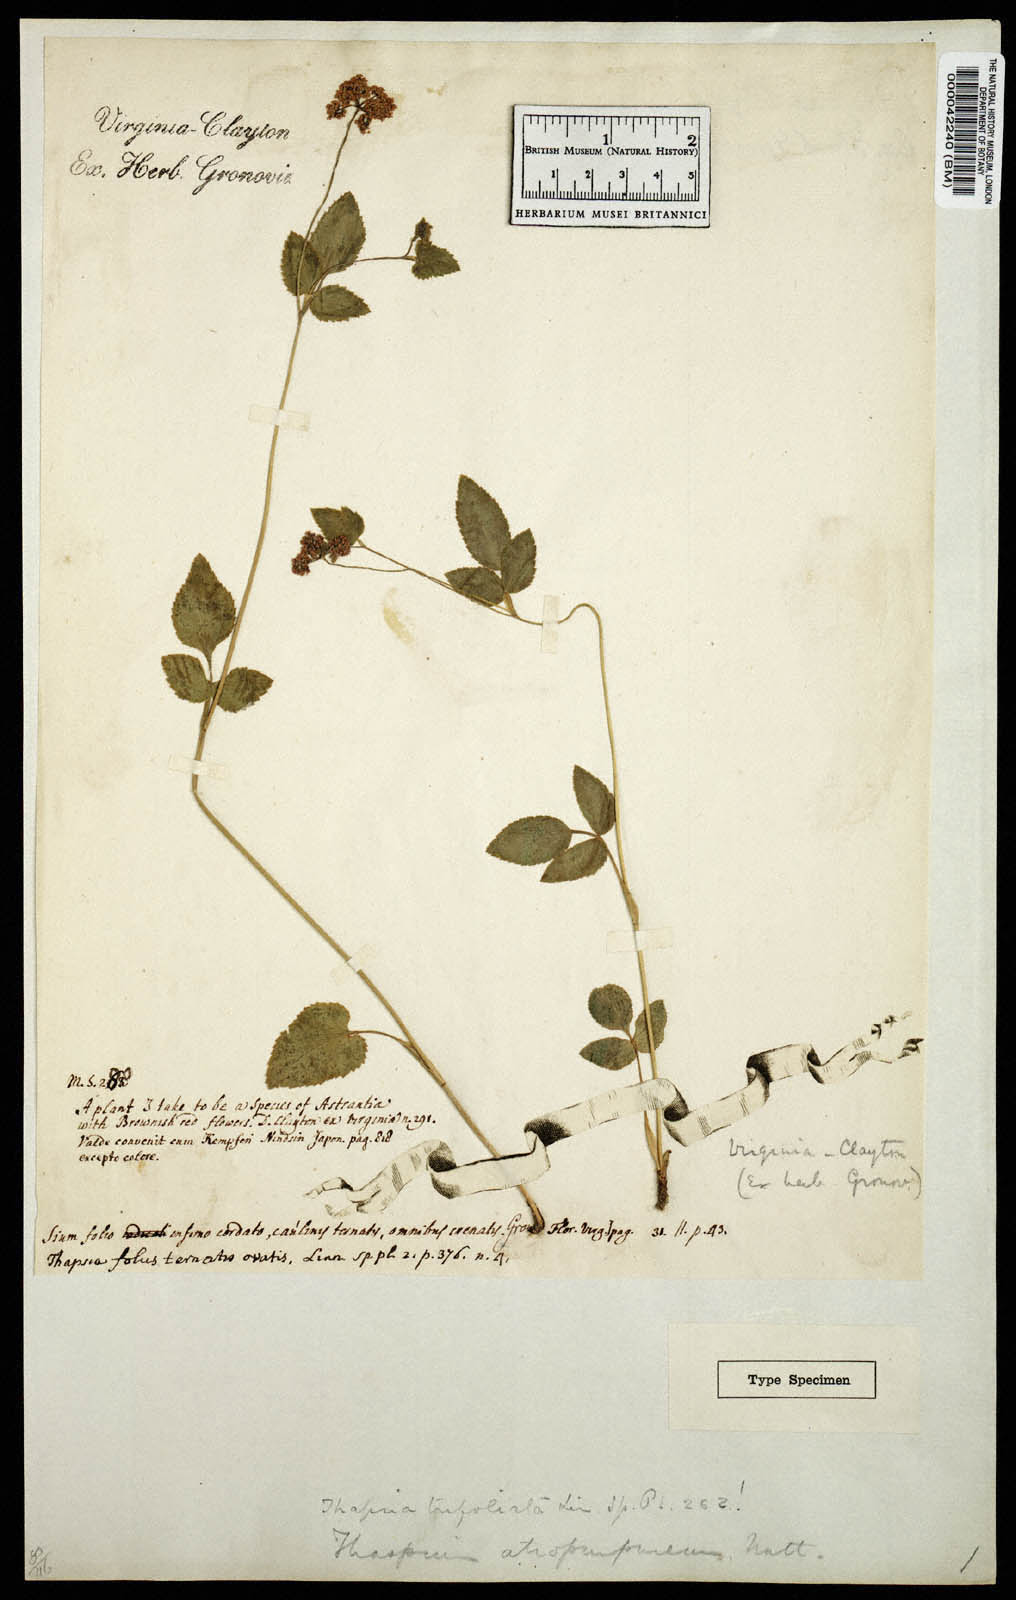 Virginia-Clayton
Ex. Herb. Gronovii
1 2
BRITISH MUSEUM (NATURAL HISTORY)
1 2 3 4 5
HERBARIUM MUSEI BRITANNICI
THE NATURAL HISTORY MUSEUM, LONDON
DEPARTMENT OF BOTANY
000042240 (BM)
M. S.
A plant I take to be a Species of Astrantia
with Brownish red flowers. D. Clayton ex Virginia n. 291.
Valde convenit cum Kempferi Nindsin Japon. pag. 818
excepto colore.
Virginia - Clayton
(Ex herb. Gronov.)
Sium folio infimo cordato, caulinis ternatis, omnibus crenatis. Gron. Flor. Virg. pag. 31. II. p. 43.
Thapsia foliis ternatis ovatis. Linn. sp. pl. 2. p. 376. n. 4.
Type Specimen
Thapsia trifoliata Lin. Sp. Pl. 262!
Thaspium atropurpureum, Nutt.
1